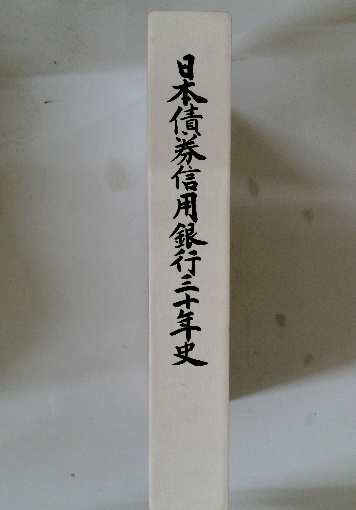 日本債券信用銀行三十年史